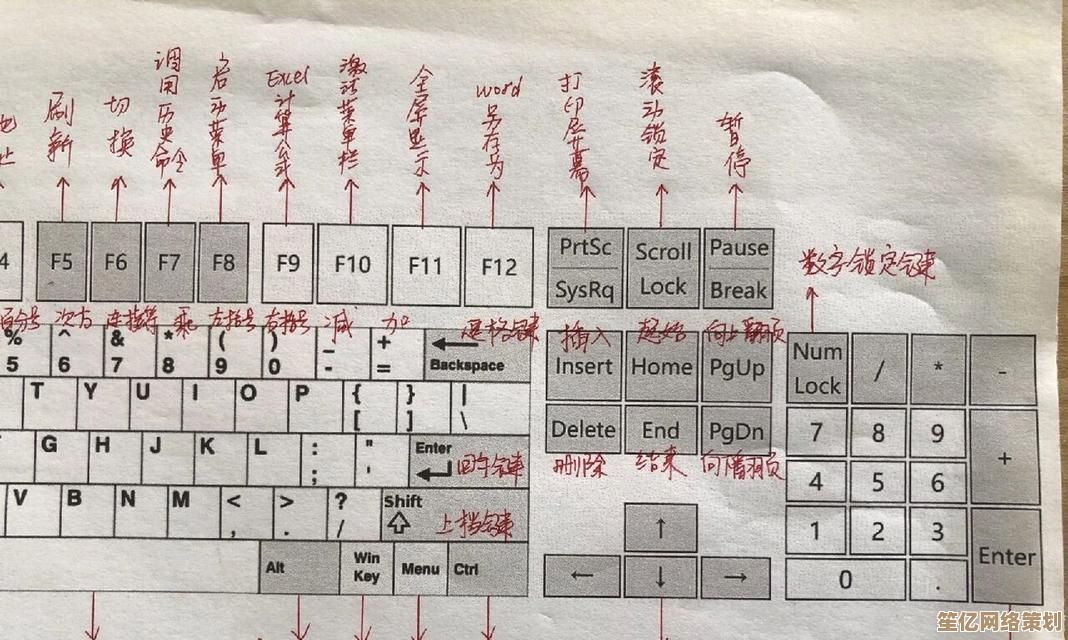 调用历史命令
启动菜单
Excel计算公式
激活菜单栏
全屏显示
word另存为
打印屏幕
滚动锁定
暂停
刷新
切换
数字锁定键
4 F5 F6 F7 F8 F9 F10 F11 F12
PrtSc SysRq Scroll Lock Pause Break
百分号 次方 连接符 乘 左括号 右括号 减 加 退格键
插入 起始 向上翻页
% ^ & * ( ) _ +
5 6 7 8 9 0 - = Backspace
Insert Home PgUp
Num Lock / * -
T Y U I O P { } |
[ ] \
Delete End PgDn
删除 结束 向下翻页
7 8 9 +
G H J K L : " Enter
; ' 回车键
4 5 6
V B N M < > ? Shift
, . / 上档键
↑
1 2 3 Enter
Alt Win Key Menu Ctrl
← ↓ →
0 .
笙亿网络策划